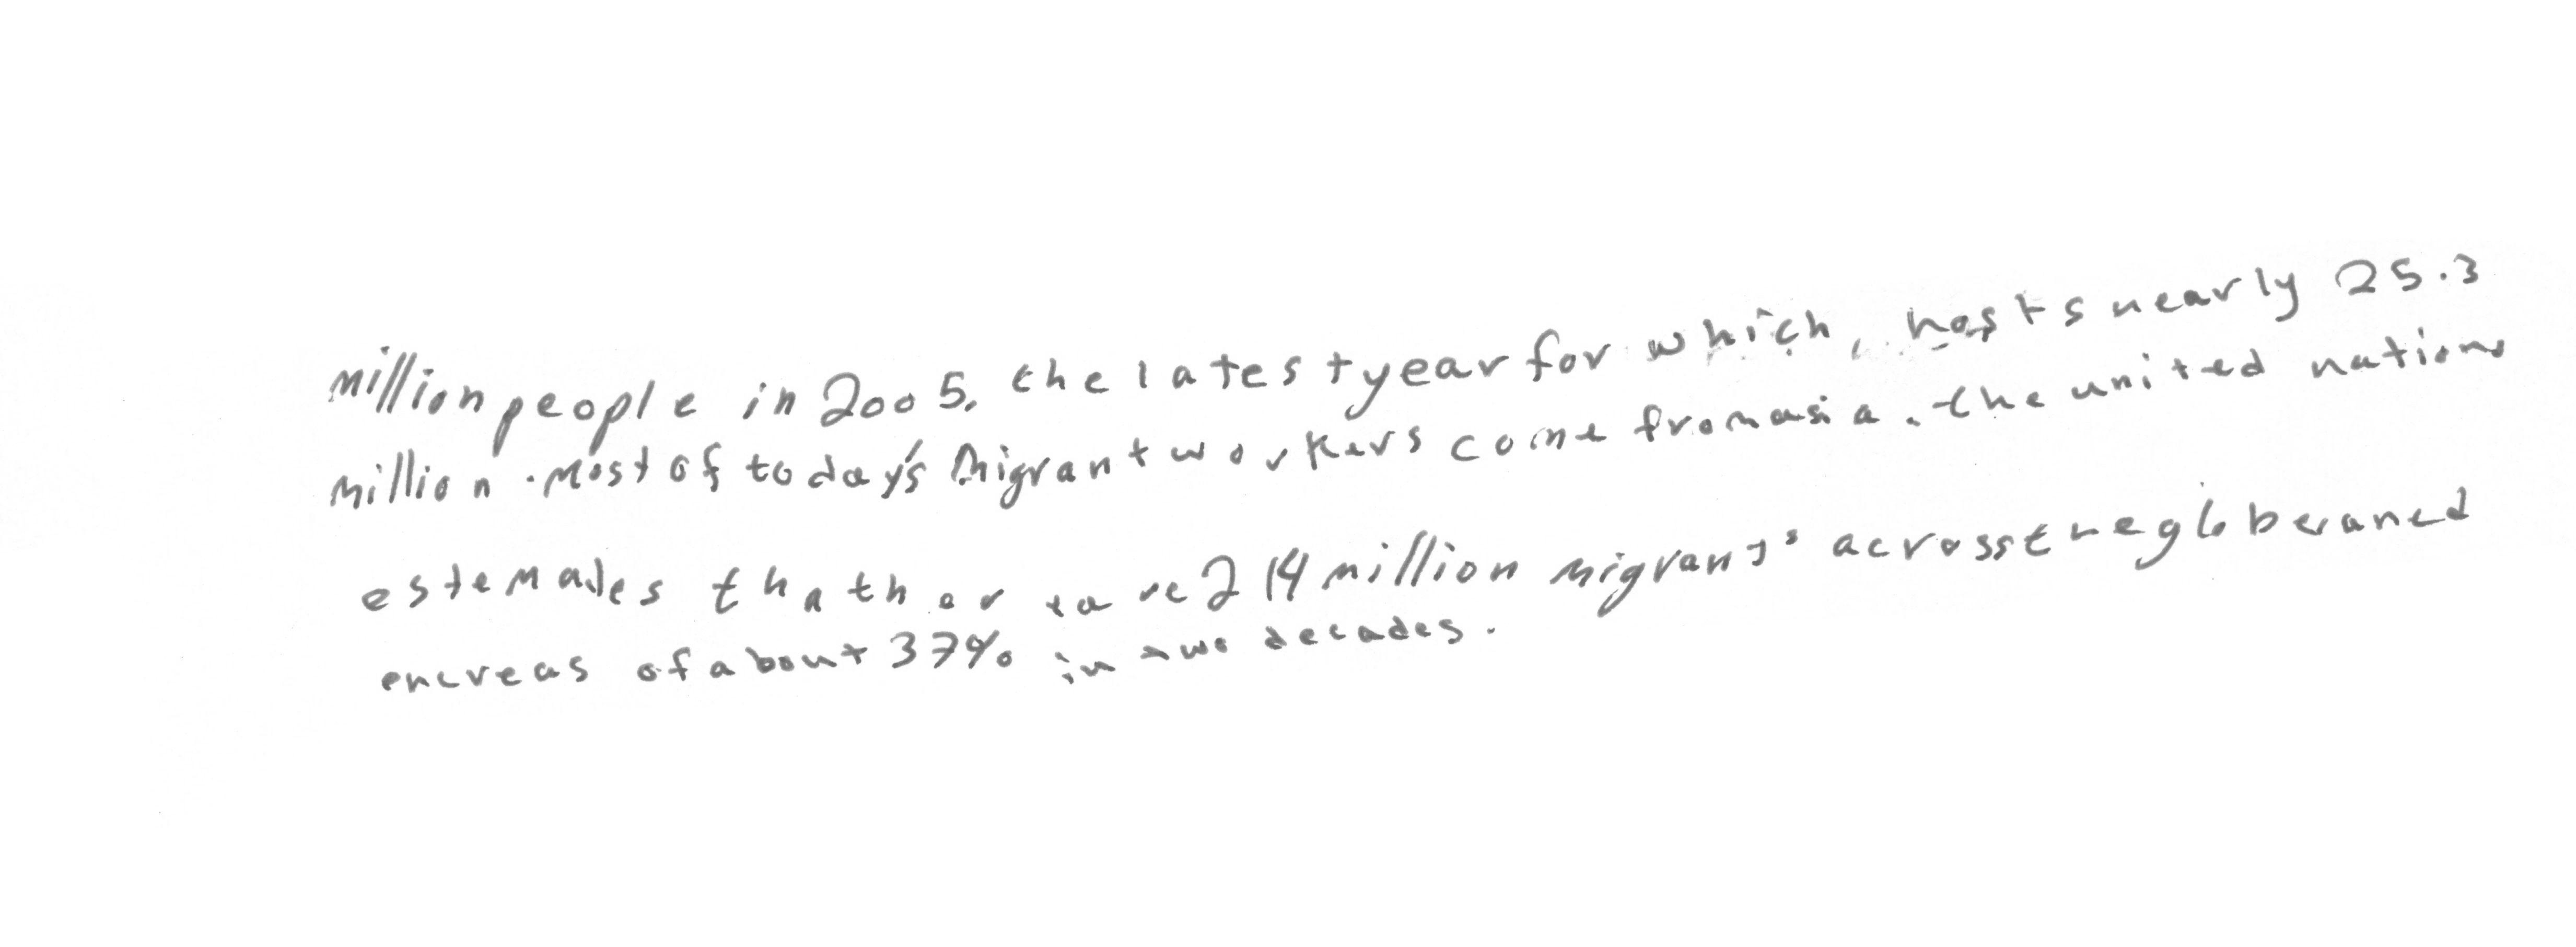 million people in 2005, the latest year for which, hosts nearly 25.3
million. Most of today's migrant workers come from asia. the united nations
estemates that ther are 214 million migrants across the globe and
encreas of about 37% in two decades.